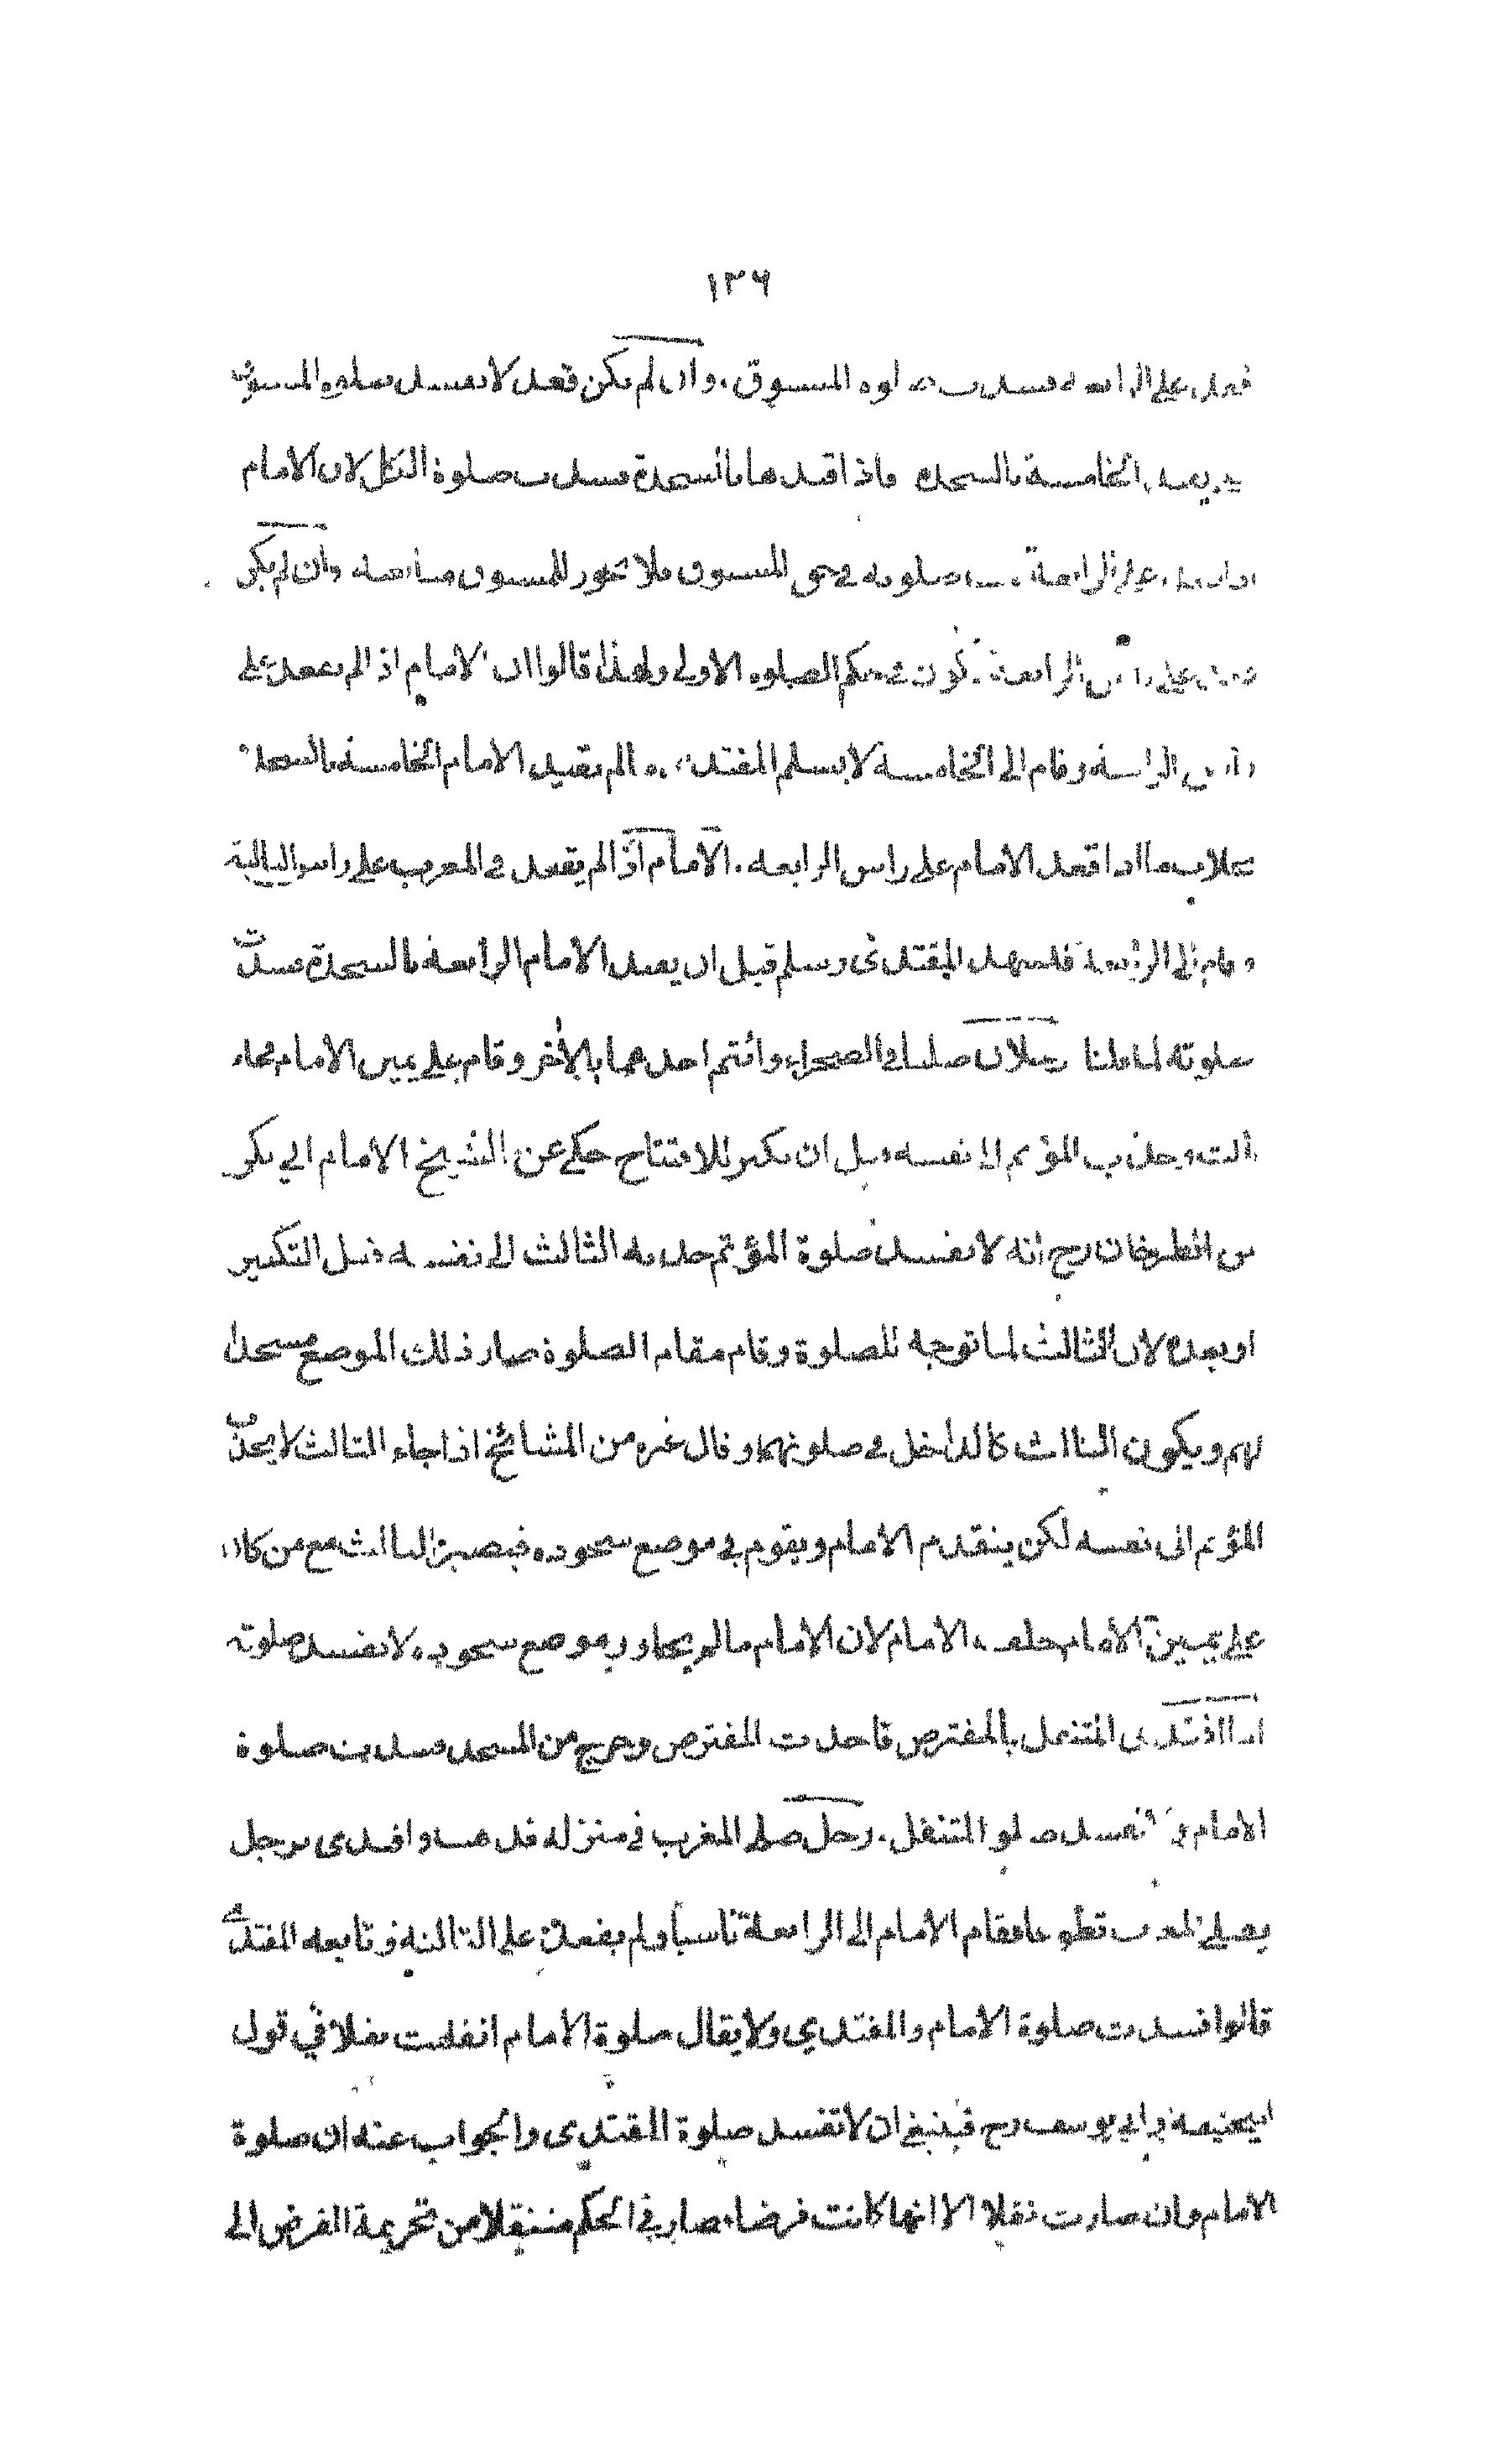 ١٣٦
على الرابعة فسدت صلوة المسبوق. وان لم يكن قعد لا تفسد صلوة المسبوق
يقيد الخامسة بالسجدة فاذا قيدها بالسجدة فسدت صلوة الكل لان الامام
على الرابعة صلوته في حق المسبوق فلا يجوز للمسبوق متابعته وان لم يكن
على راس الرابعة يكون في حكم الصلوة الاولى ولهذا قالوا ان الامام اذا لم يقعد على
راس الرابعة وقام الى الخامسة لا يسلم المقتدى ما لم يقيد الامام الخامسة بالسجدة
بخلاف ما اذا قعد الامام على راس الرابعة. الامام اذا لم يقعد في المغرب على راس الثالثة
وقام الى الرابعة فتشهد المقتدى وسلم قبل ان يقيد الامام الرابعة بالسجدة فسدت
صلوته لما قلنا رجلان صليا في الصحراء وائتم احدهما بالآخر وقام على يمين الامام فجاء
ثالث وجذب المؤتم الى نفسه قبل ان يكبر للافتتاح حكي عن الشيخ الامام ابي بكر
بن الطرخان رح انه لا تفسد صلوة المؤتم جذبه الثالث الى نفسه قبل التكبير
او بعده لان الثالث لما توجه للصلوة وقام مقام الصلوة صار ذلك الموضع مسجدا
لهم ويكون الثالث كالداخل في صلوتهما وقال غيره من المشائخ اذا جاء الثالث لا يجذب
المؤتم الى نفسه لكن يتقدم الامام ويقوم في موضع سجوده فيصير الثالث مع من كان
على يمين الامام خلف الامام لان الامام ما لم يجاوز موضع سجوده لا تفسد صلوته
اذا اقتدى المتنفل بالمفترض فاحدث المفترض وخرج من المسجد فسدت صلوة
الامام تفسد صلوة المتنفل. رجل صلى المغرب في منزله واقتدى برجل
يصلي المغرب تطوعا فقام الامام الى الرابعة ناسيا ولم يقعد على الثالثة وتابعه المقتدي
قالوا فسدت صلوة الامام والمقتدي ولا يقال صلوة الامام انقلبت نفلا في قول
ابيحنيفة وابي يوسف رح فينبغي ان لا تفسد صلوة المقتدى والجواب عنه ان صلوة
الامام وان صارت نفلا الا انها كانت فرضا فصار في الحكم منتقلا من تحريمة الفرض الى